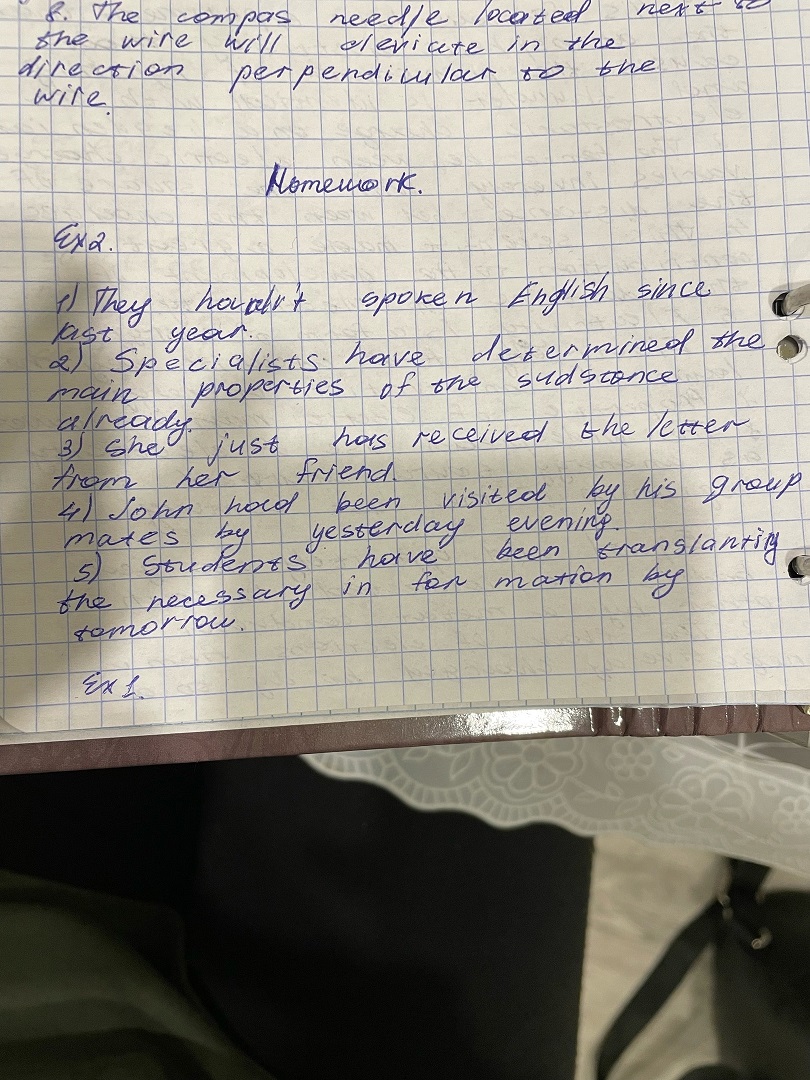 8. The compas needle located next to
the wire will deviate in the
direction perpendiular to the
wire.
Homework.
Ex2.
1) They havdn't spoken English since
last year.
2) Specialists have determined the
main properties of the substance
already.
3) She just has received the letter
from her friend.
4) John had been visited by his group
mates by yesterday evening.
5) Students have been translanting
the necessary in for mation by
tomorrow.
Ex 1.